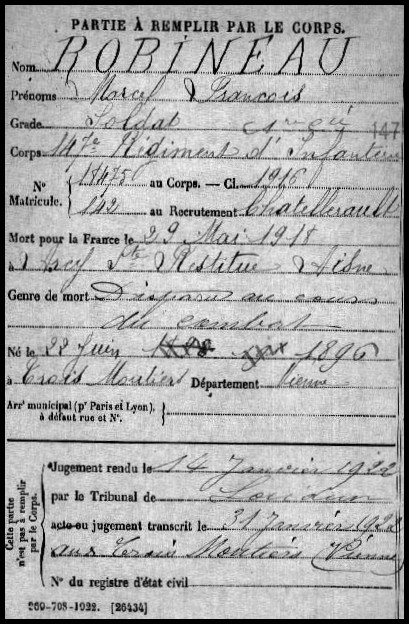 PARTIE À REMPLIR PAR LE CORPS.
Nom ROBINEAU
Prénoms Marcel François
Grade Soldat
147
Corps 147e Régiment d'Infanterie
N° Matricule. 18475 au Corps. — Cl. 1916
142 au Recrutement Chatellerault
Mort pour la France le 29 Mai 1918
à Ste Restitue Aisne
Genre de mort Disparu au cours
du combat
Né le 22 Juin 1896
à Trois Moutiers Département Vienne
Arrt municipal (pr Paris et Lyon),
à défaut rue et N°.
Cette partie n'est pas à remplir par le Corps.
Jugement rendu le 14 Janvier 1922
par le Tribunal de Loudun
acte ou jugement transcrit le 31 Janvier 1922
aux Trois Moutiers (Vienne)
N° du registre d'état civil
269-708-1922. [26434]